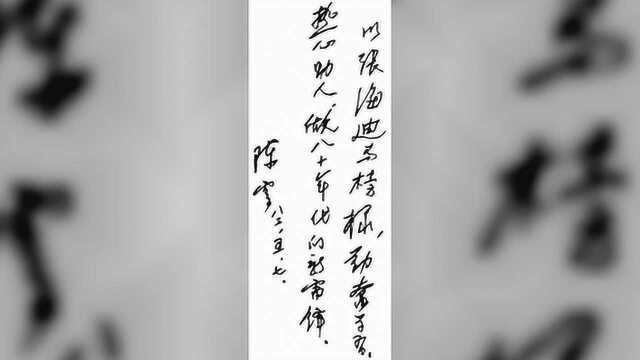 以張海迪为榜样，勤奋学习，
热心助人，做八十年代的新雷锋．
陈云 八三．五．七．